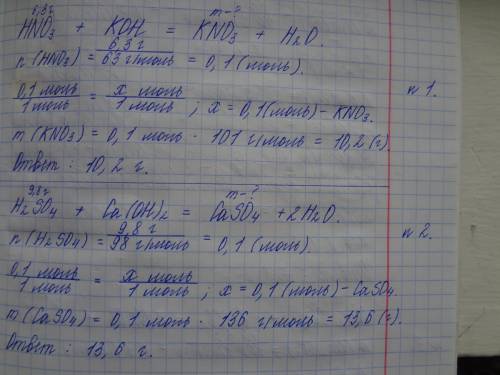 6,3 г m-?
HNO₃ + KOH = KNO₃ + H₂O.
n (HNO₃) = 6,3 г / 63 г/моль = 0,1 (моль).
n 1.
0,1 моль / 1 моль = x моль / 1 моль ; x = 0,1 (моль) - KNO₃.
m (KNO₃) = 0,1 моль · 101 г/моль = 10,2 (г)
Ответ : 10,2 г.
9,8 г m-?
H₂SO₄ + Ca(OH)₂ = CaSO₄ + 2H₂O.
n (H₂SO₄) = 9,8 г / 98 г/моль = 0,1 (моль).
n 2.
0,1 моль / 1 моль = x моль / 1 моль ; x = 0,1 (моль) - CaSO₄.
m (CaSO₄) = 0,1 моль · 136 г/моль = 13,6 (г).
Ответ : 13,6 г.